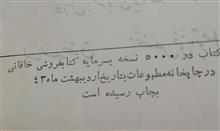 کتاب در ۵۰۰۰ نسخه بسرمایه کتابفروشی خاقانی
درچاپخانه مطبوعات بتاریخ اردیبهشت ماه ۴۳
بچاپ رسیده است